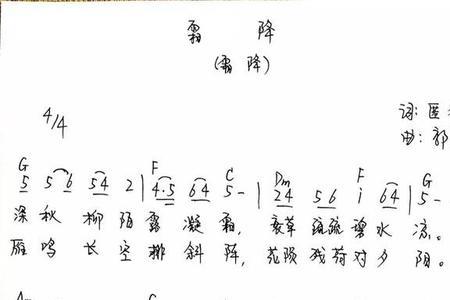 霜 降
(霜 降)
4/4
词: 匡
曲: 郭
G F C Dm F G
5 5 6 5 4 2 | 4·5 6 4 5 - | 2 4 5 6 i 6 4 | 5 -
深 秋 柳 陌 露 凝 霜, 衰 草 疏 疏 碧 水 凉。
雁 鸣 长 空 排 斜 阵, 花 陨 残 荷 对 夕 阴。
Am G